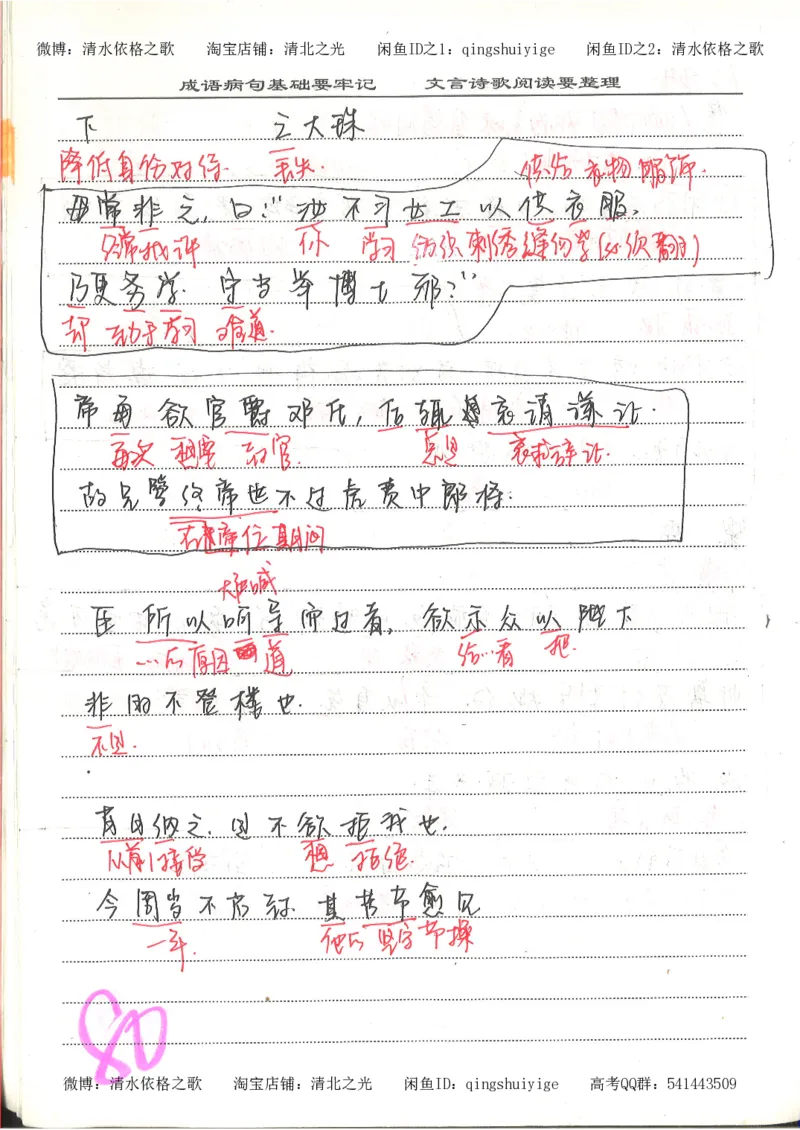 微博：清水依格之歌 淘宝店铺：清北之光 闲鱼ID之1：qingshuiyige 闲鱼ID之2：清水依格之歌
成语病句基础要牢记 文言诗歌阅读要整理
下 之大珠
降低身份对待. 丢失. 供给 衣物 服饰.
母常非之, 曰:"汝不习女工以供衣服,
经常批评 你 学习 纺织刺绣缝纫等(必须翻)
乃更务学. 宁当举博士邪?"
却 致力于学习 难道.
帝每欲官爵邓氏, 后辄哀请谦让.
每次 想要 封官. 总是 哀求辞让.
故兄骘终帝世不过虎贲中郎将.
在帝位期间
大喊
臣所以呵导而过者, 欲示众以陛下
…后原因 道 给…看 把.
非因不登楼也.
不但.
昔日纳之. 因不欲拒我也.
从前 接受 想 拒绝.
今周岁不有 其苦节愈见
一年. 他的 坚守节操
80
微博：清水依格之歌 淘宝店铺：清北之光 闲鱼ID：qingshuiyige 高考QQ群：541443509